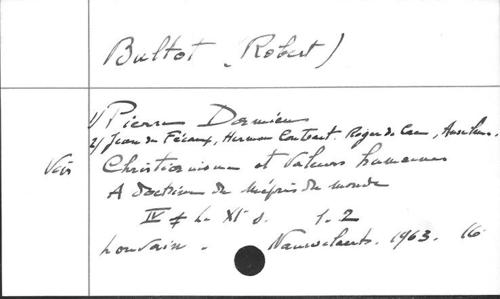 Bultot (Robert)
1/ Pierre Damien
2/ Jean de Fécamp, Herman Contract. Roger de Caen, Anselme.
Voir Christianisme et valeurs humaines
A doctrine du mépris du monde
IV le XIe s. 1-2
Louvain. Nauwelaerts. 1963. 16